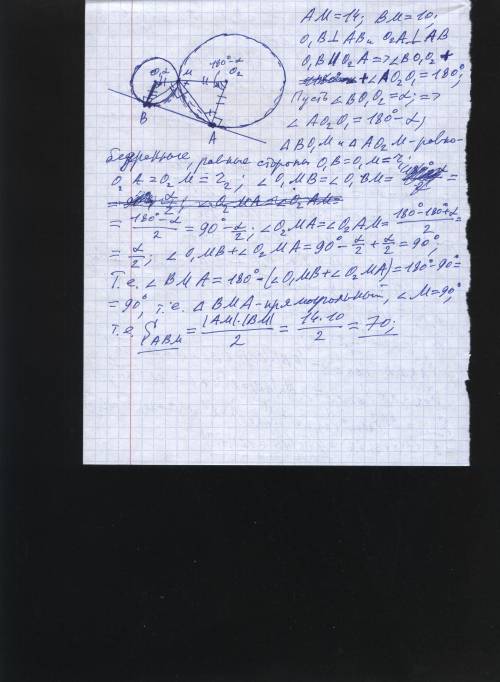 AM=14; BM=10;
O₁B⊥AB и O₂A⊥AB
O₁B∥O₂A=>∠BO₁O₂+
+∠AO₂O₁=180°;
Пусть ∠BO₁O₂=α; =>
∠AO₂O₁=180°-α;
180°-α
O₁ α M O₂
B
A
△BO₁M и △AO₂M-равно-
бедренные, равные стороны O₁B=O₁M=r₁;
O₂A=O₂M=r₂; ∠O₁MB=∠O₁BM=
= (180°-α)/2 = 90°-α/2; ∠O₂MA=∠O₂AM= (180°-180°+α)/2 =
= α/2; ∠O₁MB+∠O₂MA=90°-α/2+α/2=90°;
Т.е. ∠BMA=180°-(∠O₁MB+∠O₂MA)=180°-90°=
=90°, т.е. △BMA-прямоугольный, ∠M=90°,
т.е. S ABM = |AM|·|BM|/2 = 14·10/2 = 70;